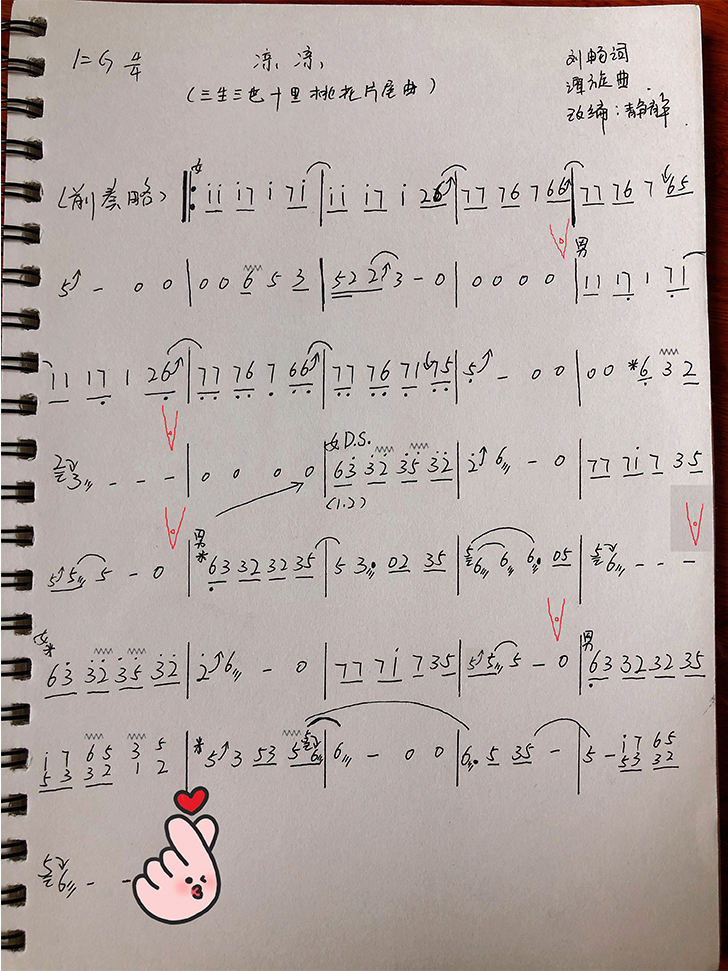 1=G 4/4 凉凉
(三生三世十里桃花片尾曲)
刘畅词
谭旋曲
改编:静
(前奏略) 女 ‖: i i i 7 i 7 i | i i i 7 i 2 6 i | 7 7 7 6 7 6 6 | 7 7 7 6 7 6 5
5 - 0 0 | 0 0 6 5 3 | 5 2 2 3 - 0 | 0 0 0 0 | 男 1 1 1 7 1 7 1
1 1 1 7 1 2 6 | 7 7 7 6 7 6 6 | 7 7 7 6 7 1 7 5 | 5 - 0 0 | 0 0 *6 3 2
2 3 - - - | 0 0 0 0 | 女 D.S. 6 3 3 2 3 5 3 2 (1.2) | 2 6 - 0 | 7 7 7 i 7 3 5
5 5 5 - 0 | 男* 6 3 3 2 3 2 3 5 | 5 3. 0 2 3 5 | 5 6 6 6. 0 5 | 5 6 - - -
女* 6 3 3 2 3 5 3 2 | 2 6 - 0 | 7 7 7 i 7 3 5 | 5 5 5 - 0 | 男 6 3 3 2 3 2 3 5
i 7 6 5 3 5 | * 5 3 5 3 5 5 6 | 6 - 0 0 | 6. 5 3 5 - | 5 - i 7 6 5
5 3 3 2 1 2 5 3 3 2
5 6 - -